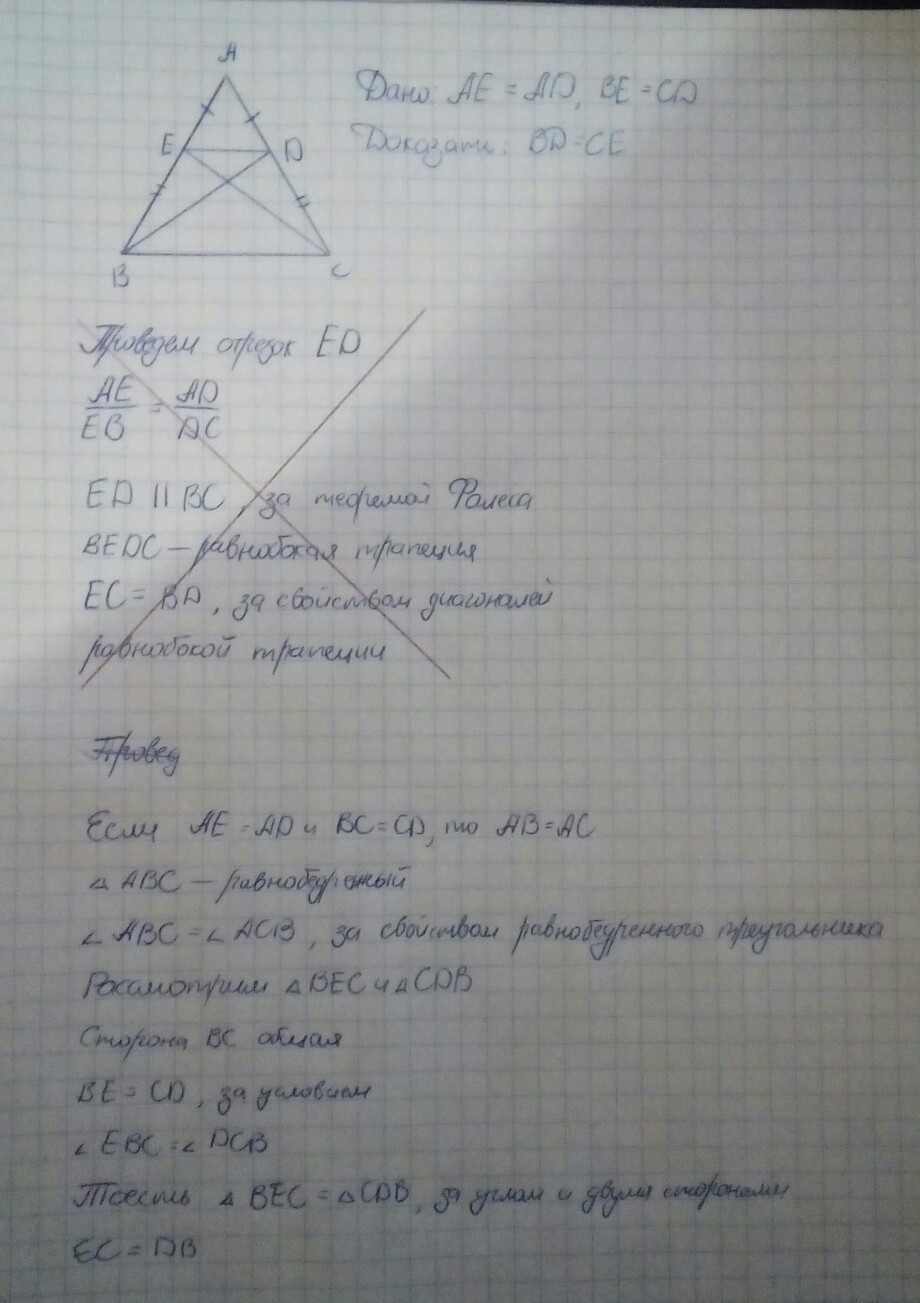 A
Дано: AE = AD, BE = CD
E D
Доказать: BD = CE
B C
Проведем отрезок ED
AE/EB = AD/DC
ED || BC, за теоремой Фалеса
BEDC — равнобокая трапеция
EC = BD, за свойством диагоналей
равнобокой трапеции
Провед
Если AE = AD и BC = CD, то AB = AC
△ ABC — равнобедренный
∠ ABC = ∠ ACB, за свойством равнобедренного треугольника
Рассмотрим △ BEC и △ CDB
Сторона BC общая
BE = CD, за условием
∠ EBC = ∠ DCB
Тоесть △ BEC = △ CDB, за углом и двумя сторонами
EC = DB